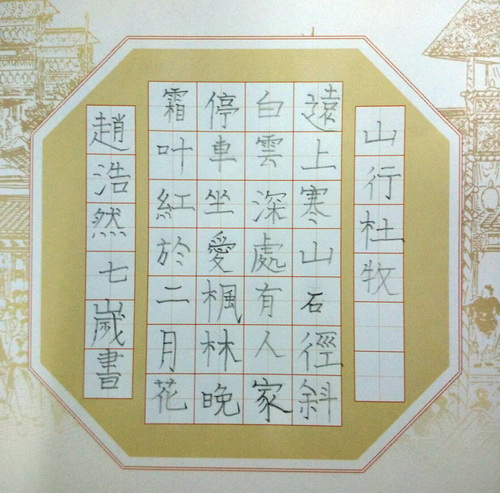 山行杜牧
遠上寒山石徑斜
白雲深處有人家
停車坐愛楓林晚
霜叶紅於二月花
趙浩然七歲書